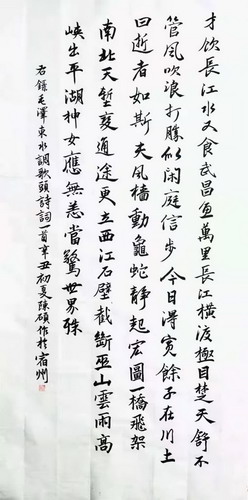 才饮長江水又食武昌魚萬里長江橫渡極目楚天舒不
管風吹浪打勝似闲庭信步今日得寬餘子在川上
曰逝者如斯夫風檣動龜蛇靜起宏圖一橋飛架
南北天塹變通途更立西江石壁截斷巫山雲雨高
峡出平湖神女應無恙當驚世界殊
右錄毛澤東水調歌頭詩詞一首辛丑初夏陳碩作於宿州